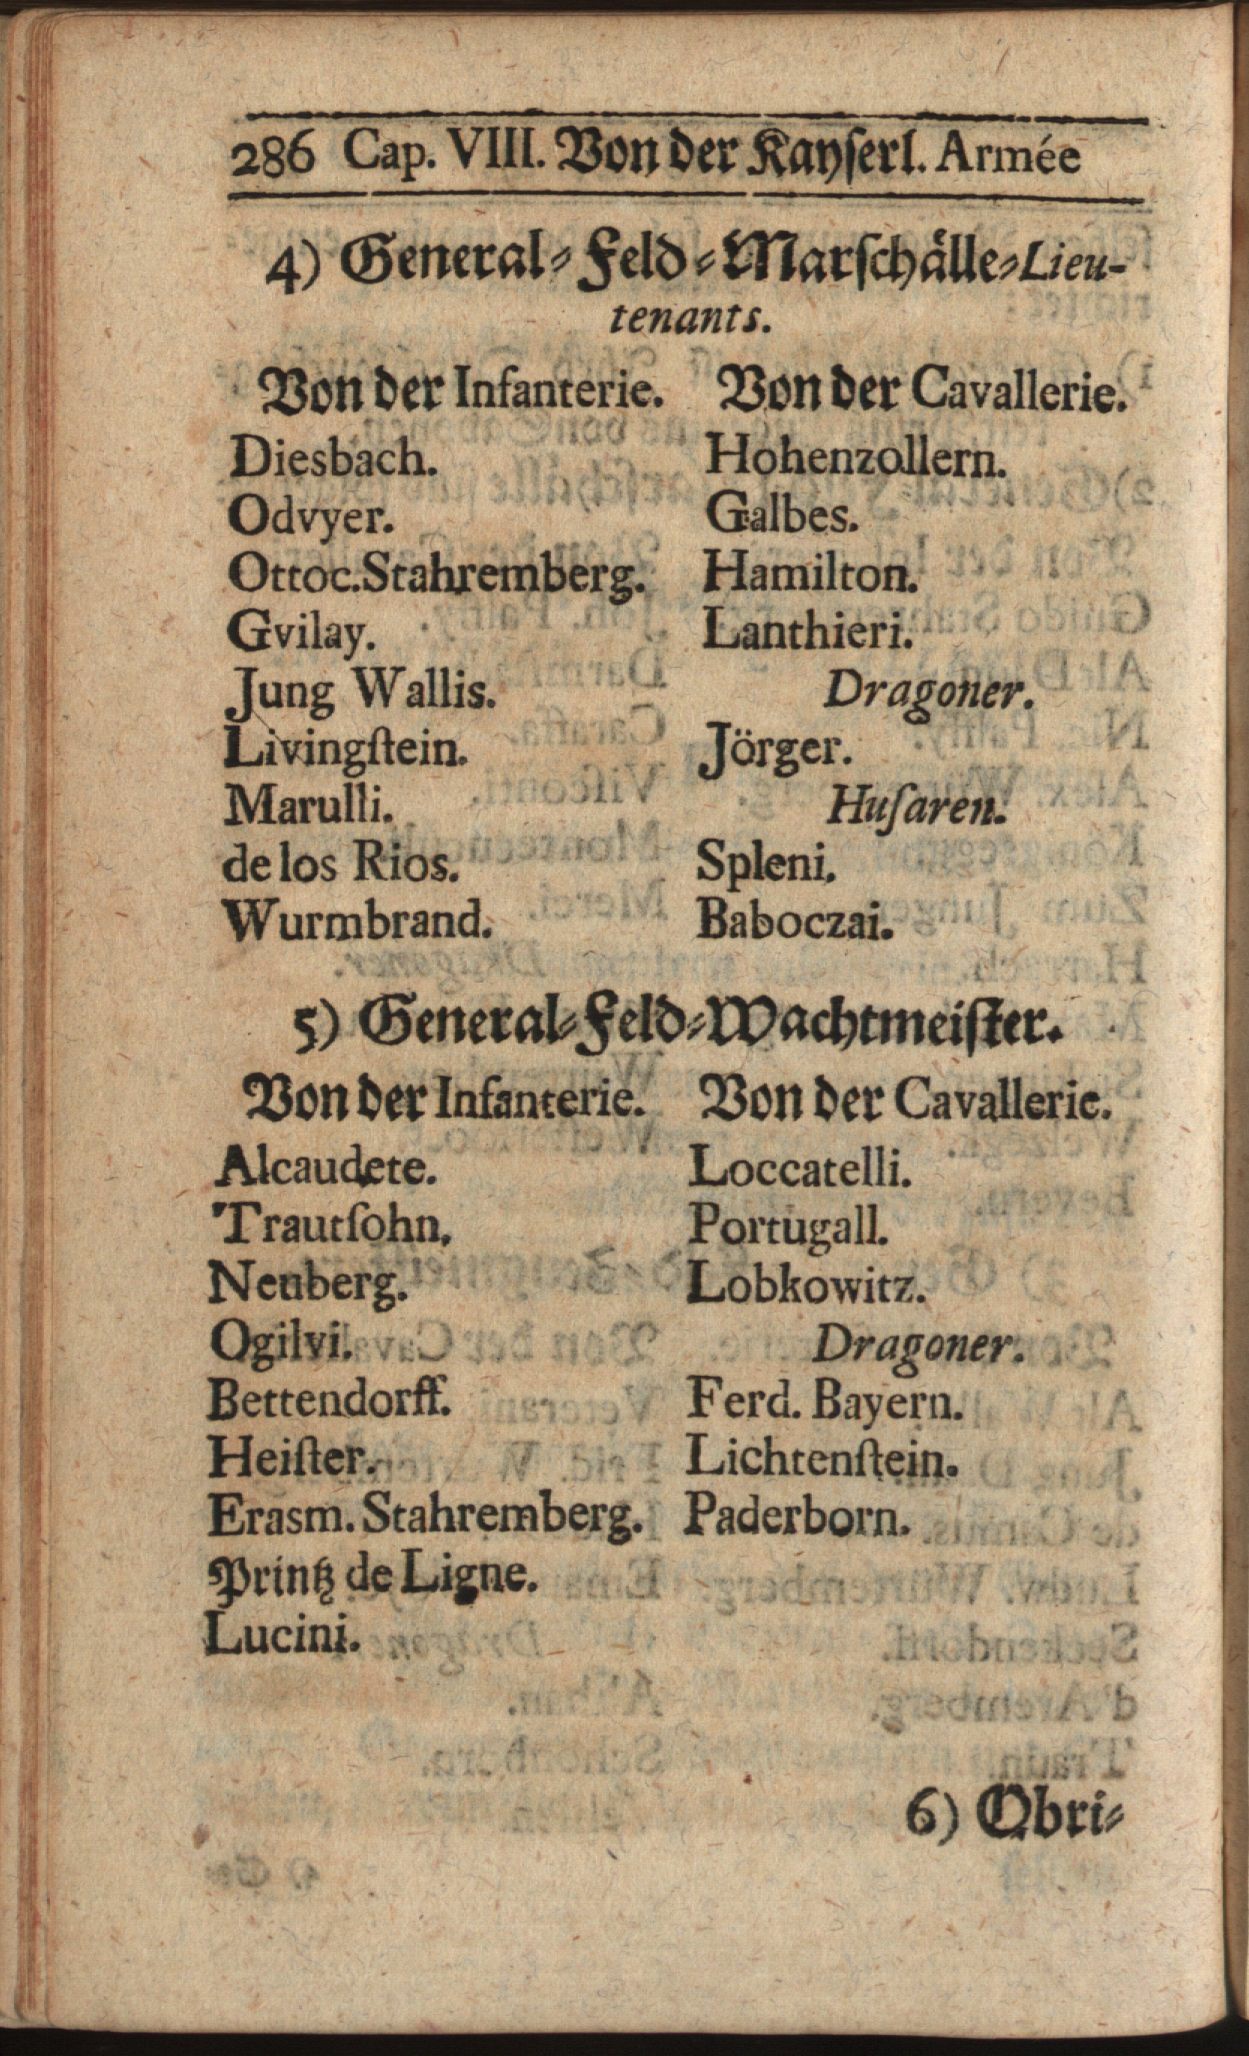 286 Cap. VIII. Von der Kayserl. Armée
4) General-Feld-Marschälle-Lieu-
tenants.
Von der Infanterie.
Diesbach.
Odvyer.
Ottoc. Stahremberg.
Gvilay.
Jung Wallis.
Livingſtein.
Marulli.
de los Rios.
Wurmbrand.
Von der Cavallerie.
Hohenzollern.
Galbes.
Hamilton.
Lanthieri.
Dragoner.
Jörger.
Huſaren.
Spleni.
Baboczai.
5) General-Feld-Wachtmeiſter.
Von der Infanterie.
Alcaudete.
Trautſohn.
Neuberg.
Ogilvi.
Bettendorff.
Heiſter.
Erasm. Stahremberg.
Printz de Ligne.
Lucini.
Von der Cavallerie.
Loccatelli.
Portugall.
Lobkowitz.
Dragoner.
Ferd. Bayern.
Lichtenſtein.
Paderborn.
6) Obri-